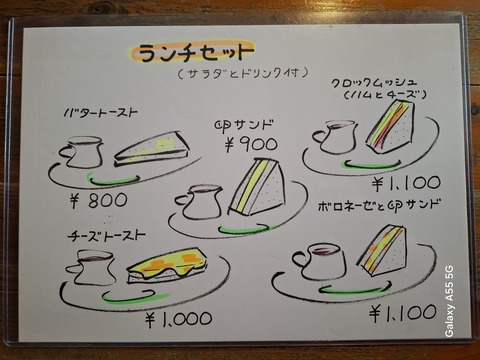 ランチセット
(サラダとドリンク付)
バタートースト
¥800
サンド
¥900
クロックムッシュ
(ハムとチーズ)
¥1.100
チーズトースト
¥1.000
ボロネーゼと サンド
¥1.100
Galaxy A55 5G